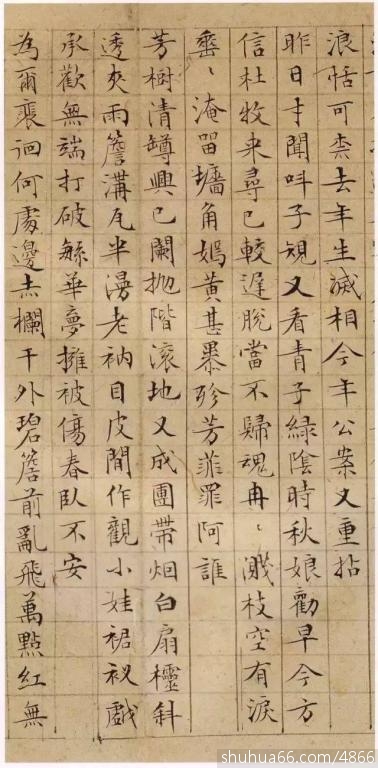 浪恬可柰去年生滅相今年公案又重拈
昨日才聞叫子規又看青子綠陰時秋娘勸早今方
信杜牧来尋已較遲脫當不歸魂冉〻濺枝空有淚
垂〻淹留墻角嫣黃甚暴殄芳菲罪阿誰
芳樹清罇興已闌抛階滚地又成團帶烟白扇欞斜
透夾雨簷溝瓦半漫老衲目皮閒作觀小娃裙衩戲
承歡無端打破緐華夢擁被傷春臥不安
為爾裵迴何處邊赤欄干外碧簷前亂飛萬點紅無
shuhua66.com/4866